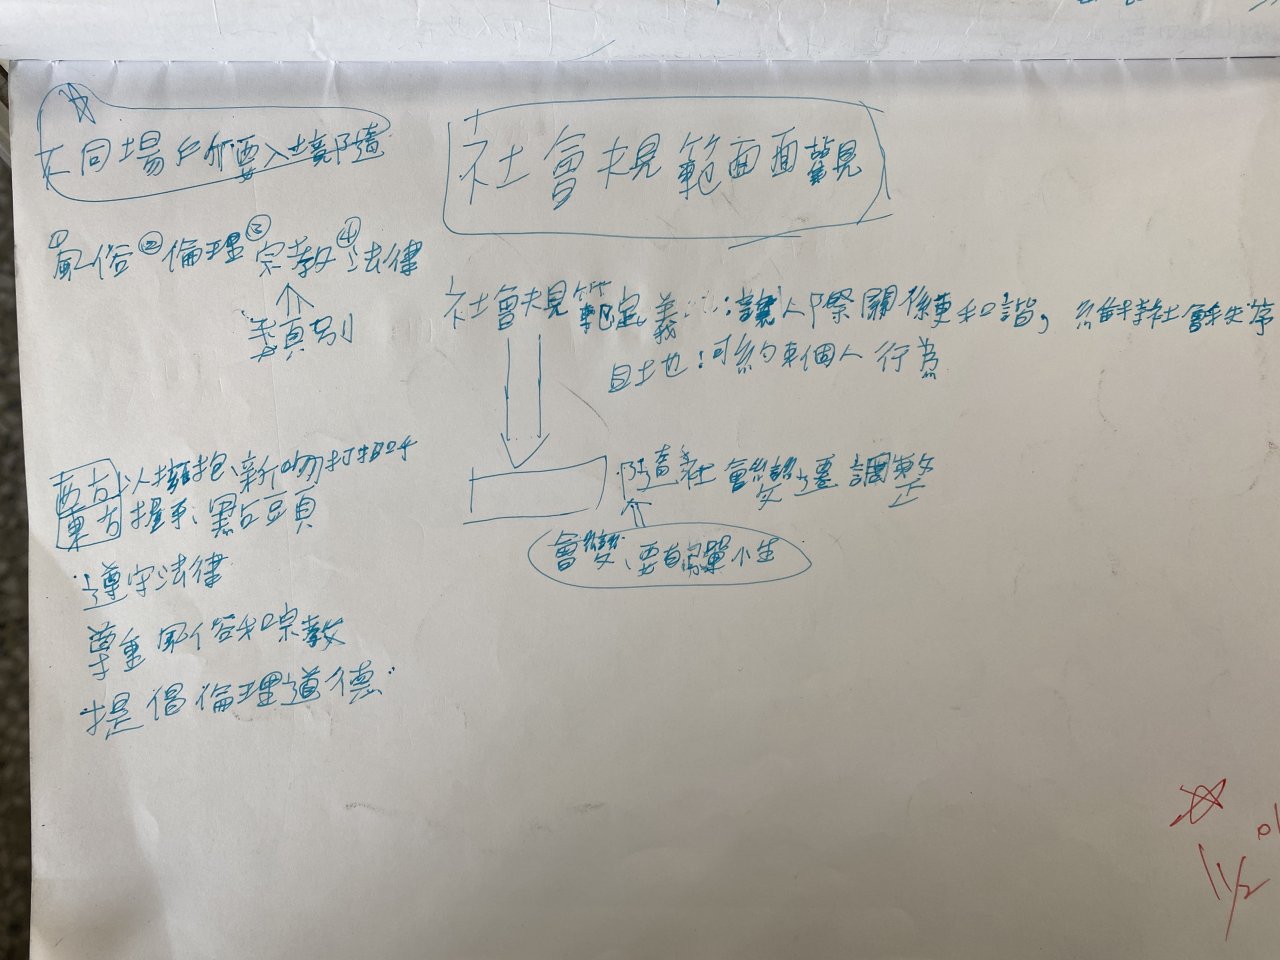 不同場所要入境隨
社會規範面面觀
①風俗②倫理③宗教④法律
類別
社會規範定義:讓人際關係更和諧,維持社會秩序
目地:可約束個人行為
隨社會變遷調整
會變、要有彈小生
西方以擁抱、親吻打招呼
東方握手、點頭
遵守法律
尊重風俗和宗教
提倡倫理道德
11/2